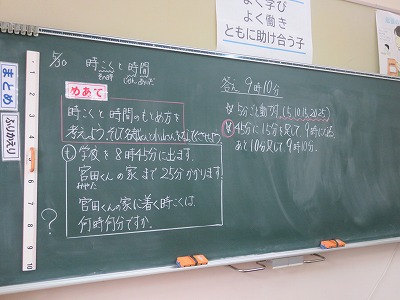 よく学び
よく働き
ともに助け合う子
まとめ
ふりかえり
5/30 時こくと時間
めあて
時こくと時間のもとめ方を
考えよう。
も 学校を8時45分に出ます。
宮田くんの家まで25分かかります。
宮田くんの家に着く時こくは、
何時何分ですか。
?
1
2
3
4
5
6
7
8
9
10
答え 9時10分
5分ごと動かす。(5,10,15,20,25)
45分に15分を足して9時
あと10分足して9時10分。